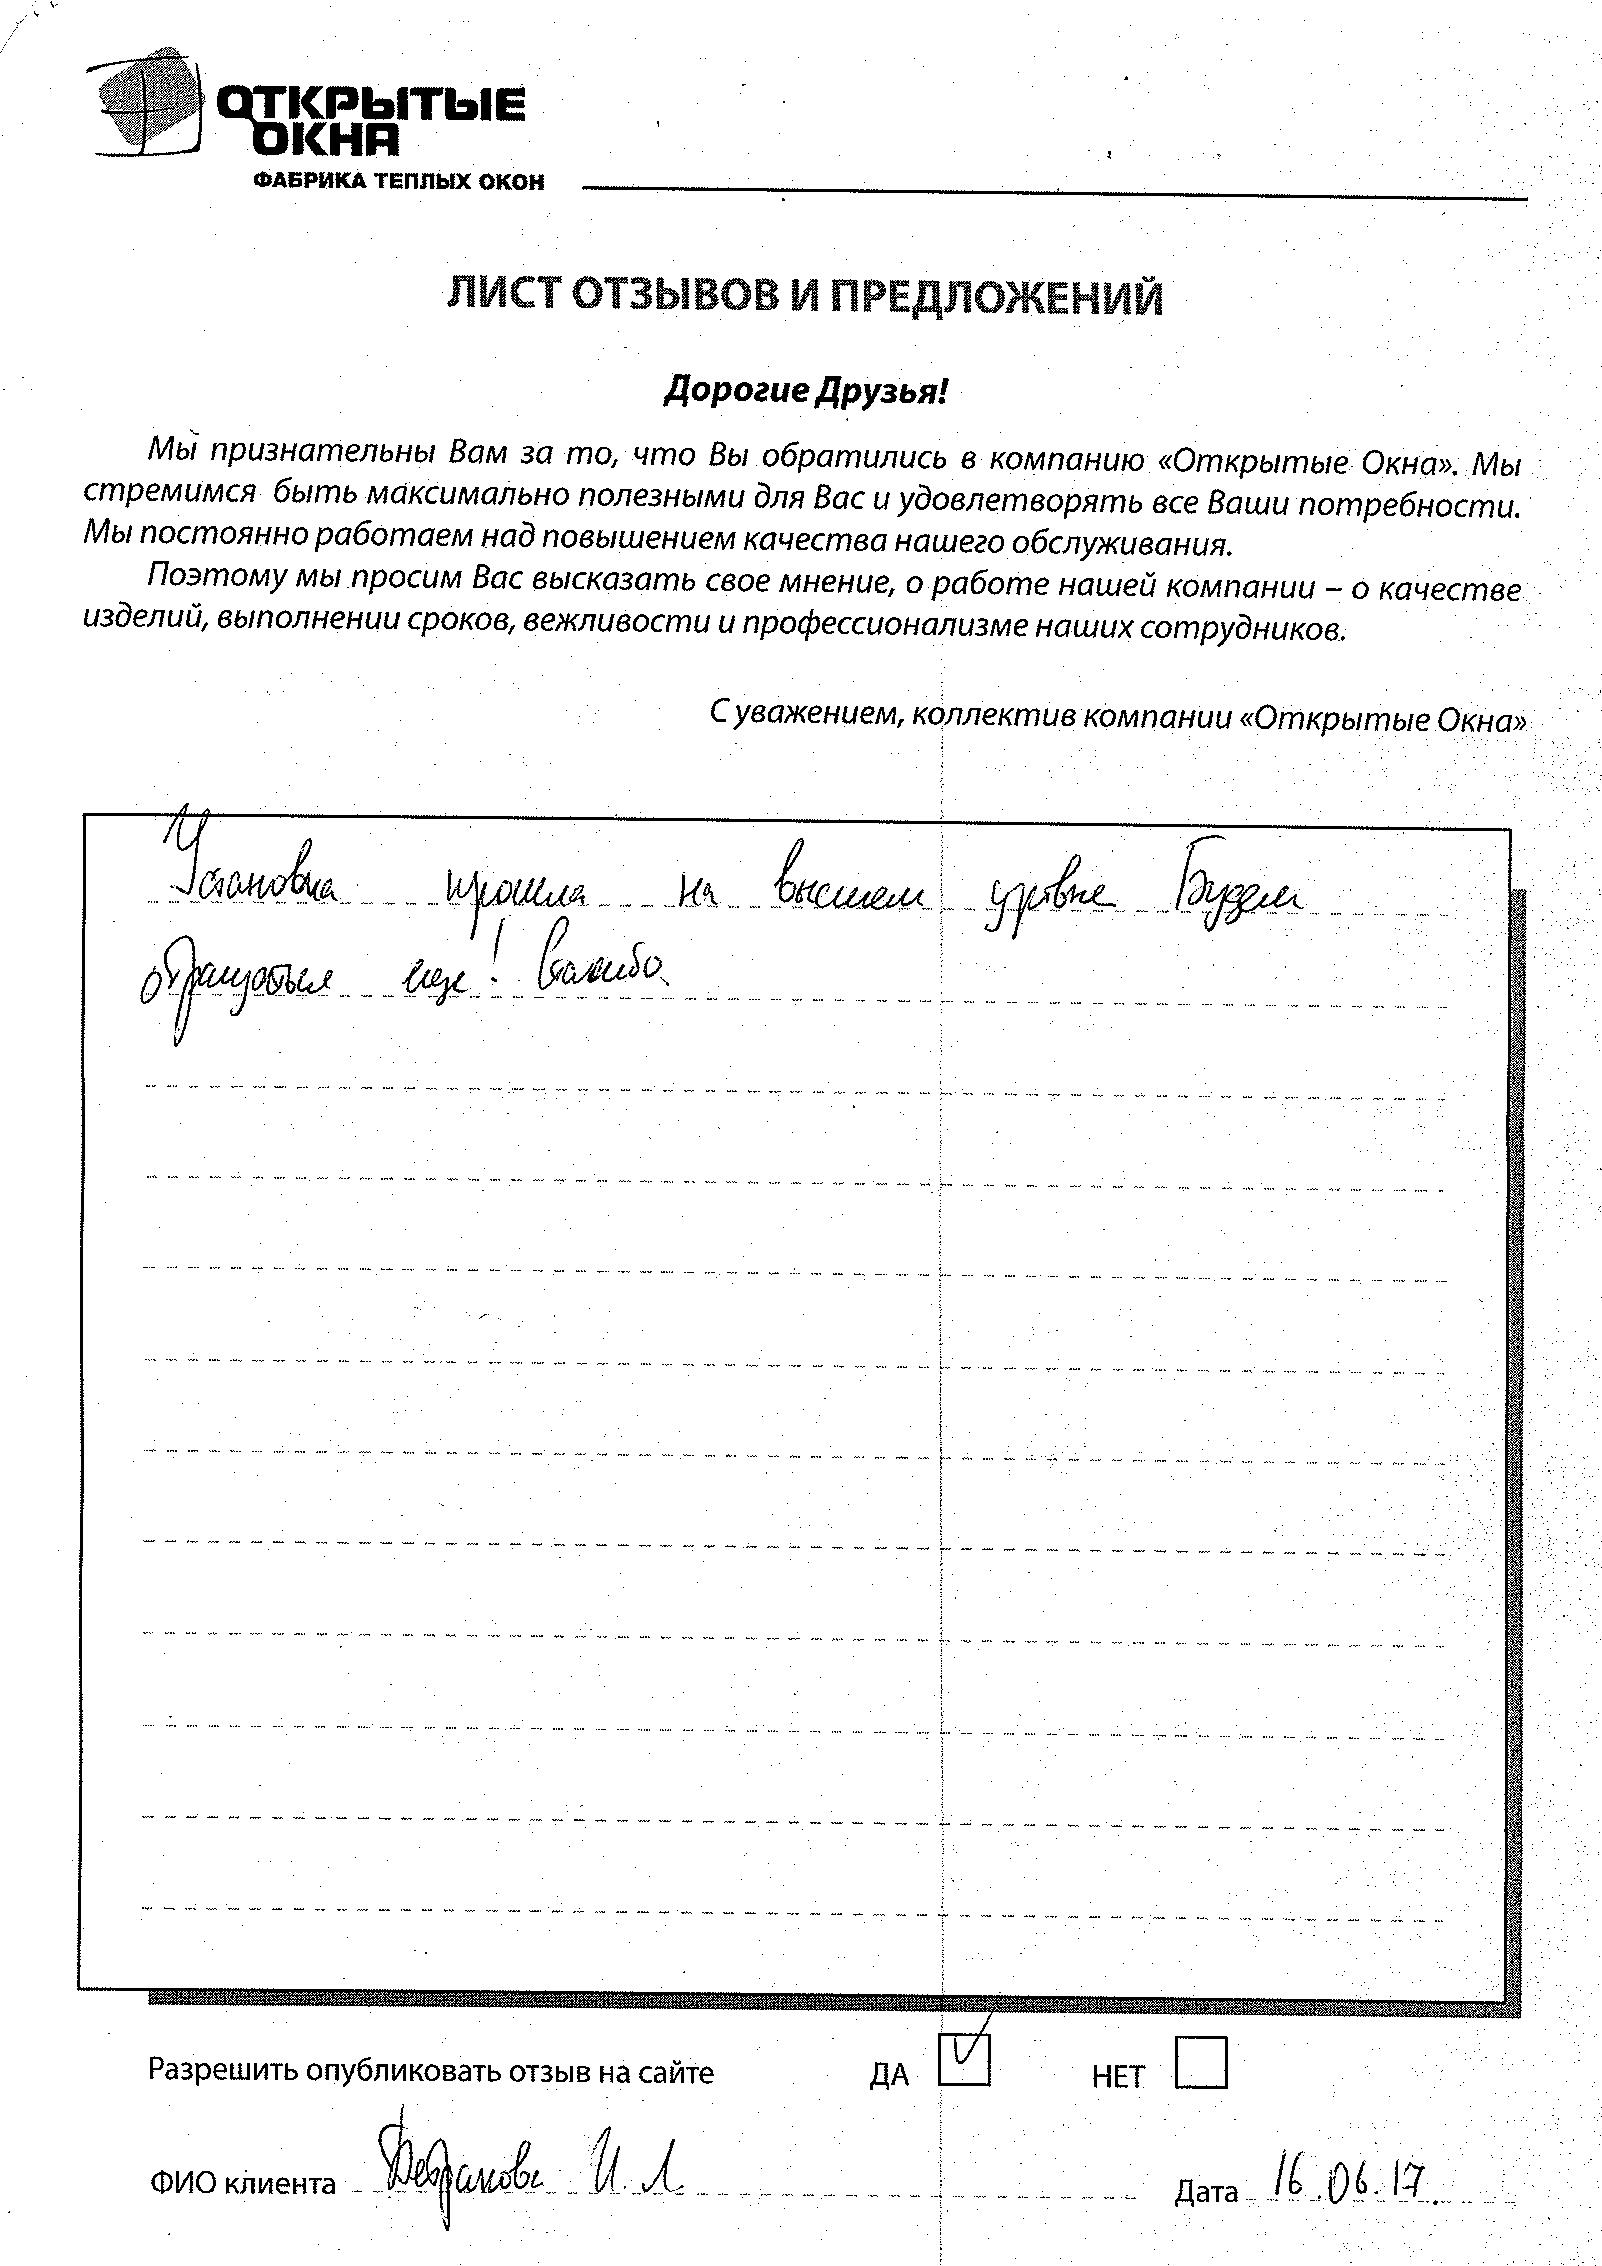 ОТКРЫТЫЕ
ОКНА
ФАБРИКА ТЕПЛЫХ ОКОН
ЛИСТ ОТЗЫВОВ И ПРЕДЛОЖЕНИЙ
Дорогие Друзья!
Мы признательны Вам за то, что Вы обратились в компанию «Открытые Окна». Мы
стремимся быть максимально полезными для Вас и удовлетворять все Ваши потребности.
Мы постоянно работаем над повышением качества нашего обслуживания.
Поэтому мы просим Вас высказать свое мнение, о работе нашей компании – о качестве
изделий, выполнении сроков, вежливости и профессионализме наших сотрудников.
С уважением, коллектив компании «Открытые Окна»
Установка прошла на высшем уровне Будем
обращаться еще! Спасибо
Разрешить опубликовать отзыв на сайте ДА НЕТ
ФИО клиента И. Л. Дата 16.06.17